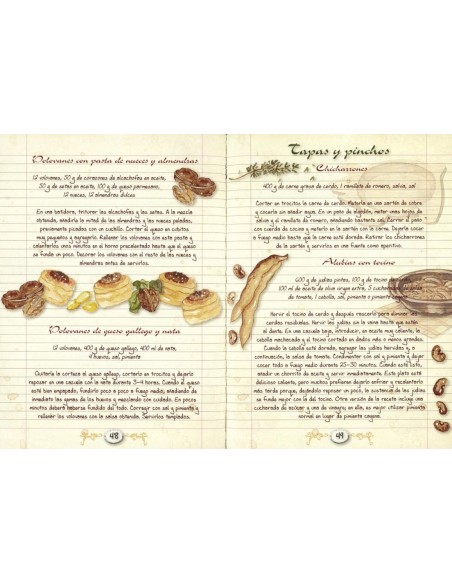 Volovanes con pasta de nueces y almendras
12 volovanes, 30 g de corazones de alcachofas en aceite,
30 g de setas en aceite, 100 g de queso parmesano,
12 nueces, 12 almendras dulces
En una batidora, triturar las alcachofas y las setas. A la mezcla
obtenida, añadir la mitad de las almendras y las nueces peladas,
previamente picadas con un cuchillo. Cortar el queso en cubitos
muy pequeños y agregarlo. Rellenar los volovanes con esta pasta y
calentarlos unos minutos en el horno precalentado hasta que el queso
se funda un poco. Decorar los volovanes con el resto de las nueces y
almendras antes de servirlos.
Volovanes de queso gallego y nata
12 volovanes, 400 g de queso gallego, 400 ml de nata,
4 huevos, sal, pimienta
Quitarle la corteza al queso gallego, cortarlo en trocitos y dejarlo
reposar en una cazuela con la nata durante 3-4 horas. Cuando el queso
esté bien empapado, fundirlo poco a poco a fuego medio, añadiendo de
inmediato las yemas de los huevos y mezclando con cuidado. En pocos
minutos deberá haberse fundido del todo. Corregir con sal y pimienta y
rellenar los volovanes con la salsa obtenida. Servirlos templados.
48
Tapas y pinchos
Chicharrones
400 g de carne grasa de cerdo, 1 ramillete de romero, salvia, sal
Cortar en trocitos la carne de cerdo. Meterla en una sartén de cobre
y cocerla sin añadir nada. En un paño de algodón, meter unas hojas de
salvia y el ramillete de romero, añadiendo bastante sal. Cerrar el paño
con cuerda de cocina y meterlo en la sartén con la carne. Dejarla cocer
a fuego medio hasta que la carne esté dorada. Retirar los chicharrones
de la sartén y servirlos en una fuente como aperitivo.
Alubias con tocino
600 g de judías pintas, 100 g de tocino de
100 ml de aceite de oliva virgen extra, 3 cucharadas
de tomate, 1 cebolla, sal, pimienta o pimienta
Hervir el tocino de cerdo y después rascarlo para eliminar las
cerdas residuales. Hervir las judías sin la vaina hasta que estén
al dente. En una cazuela con mucho aceite, meter la cebolla
muy machacada y el tocino cortado en dados más o menos grandes.
Cuando la cebolla esté dorada, agregar las judías hervidas y, a
continuación, la salsa de tomate. Condimentar con sal y pimienta y dejar
cocer todo a fuego medio durante 25-30 minutos. Cuando esté cocido,
añadir un chorrito de aceite y servir inmediatamente. Este plato está
delicioso caliente, pero muchos prefieren dejarlo enfriar y recalentarlo
más tarde, porque, dejándolo reposar, la gelatina del tocino, la sustancia
se funde mejor con la del tocino. Otra versión de la receta incluye una
cucharada de azúcar y una de vinagre; en ella, es mejor utilizar pimienta
normal en lugar de pimienta cayena.
49